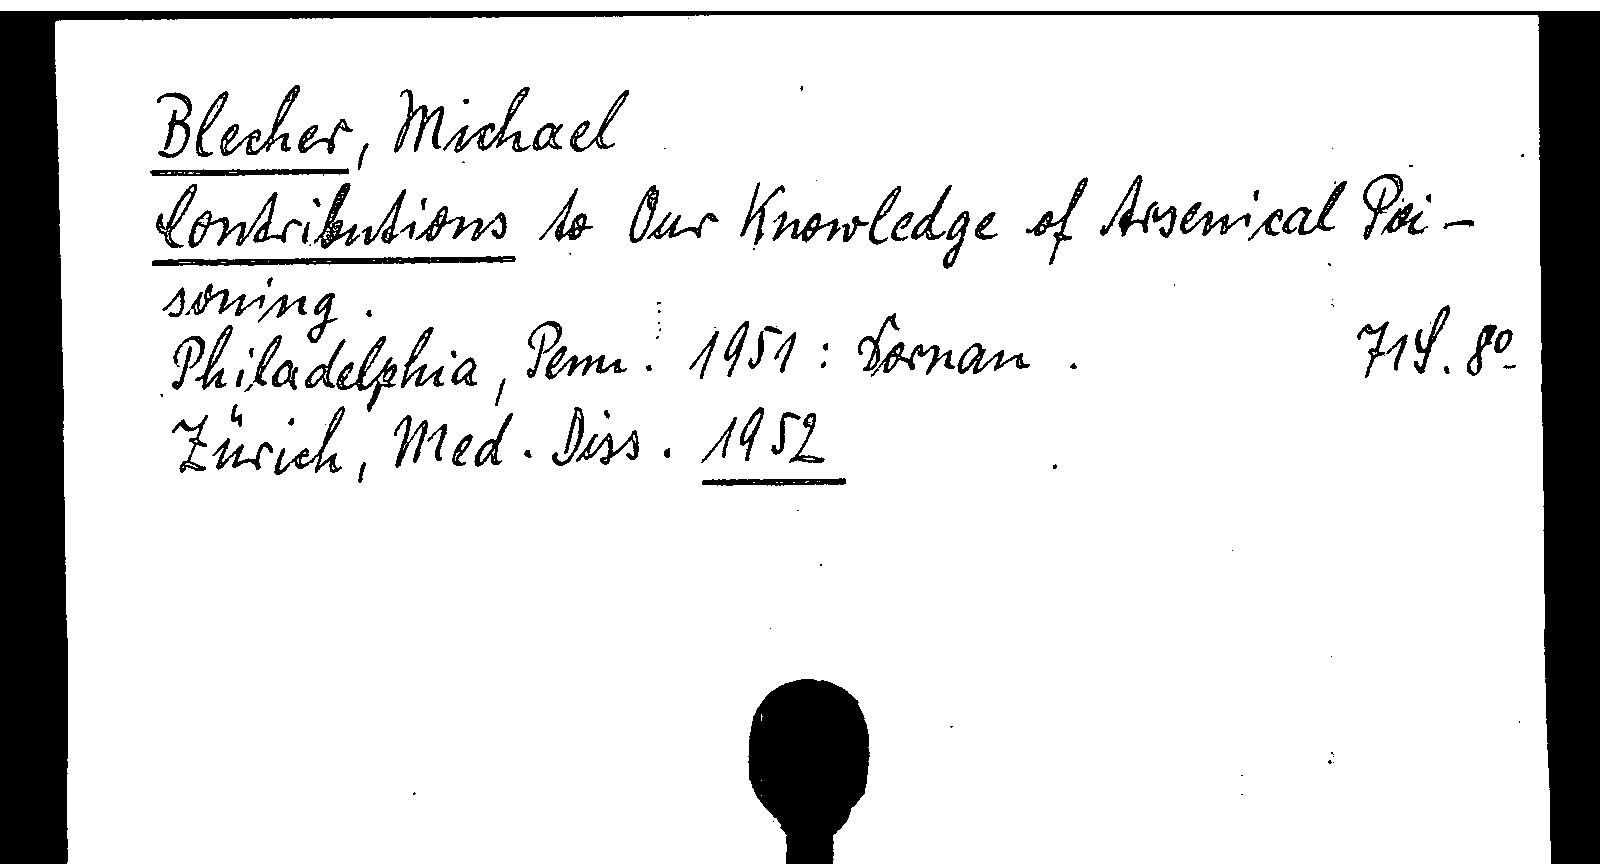 Blecher, Michael
Contributions to Our Knowledge of Arsenical Poi-
soning.
Philadelphia, Penn. 1951: Dornan. 71 S. 8°
Zürich, Med. Diss. 1952